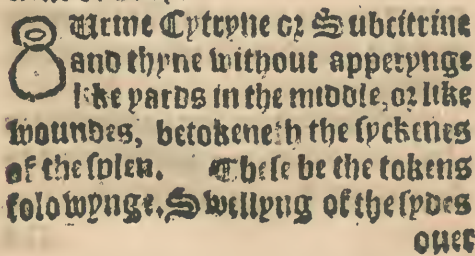 Urine Cytryne or Subcitrine
and thyne without apperynge
like yards in the middle, or like
woundes, betokeneth the syckenes
of the splen. These be the tokens
folowynge. Swellyng of the sydes
ouer